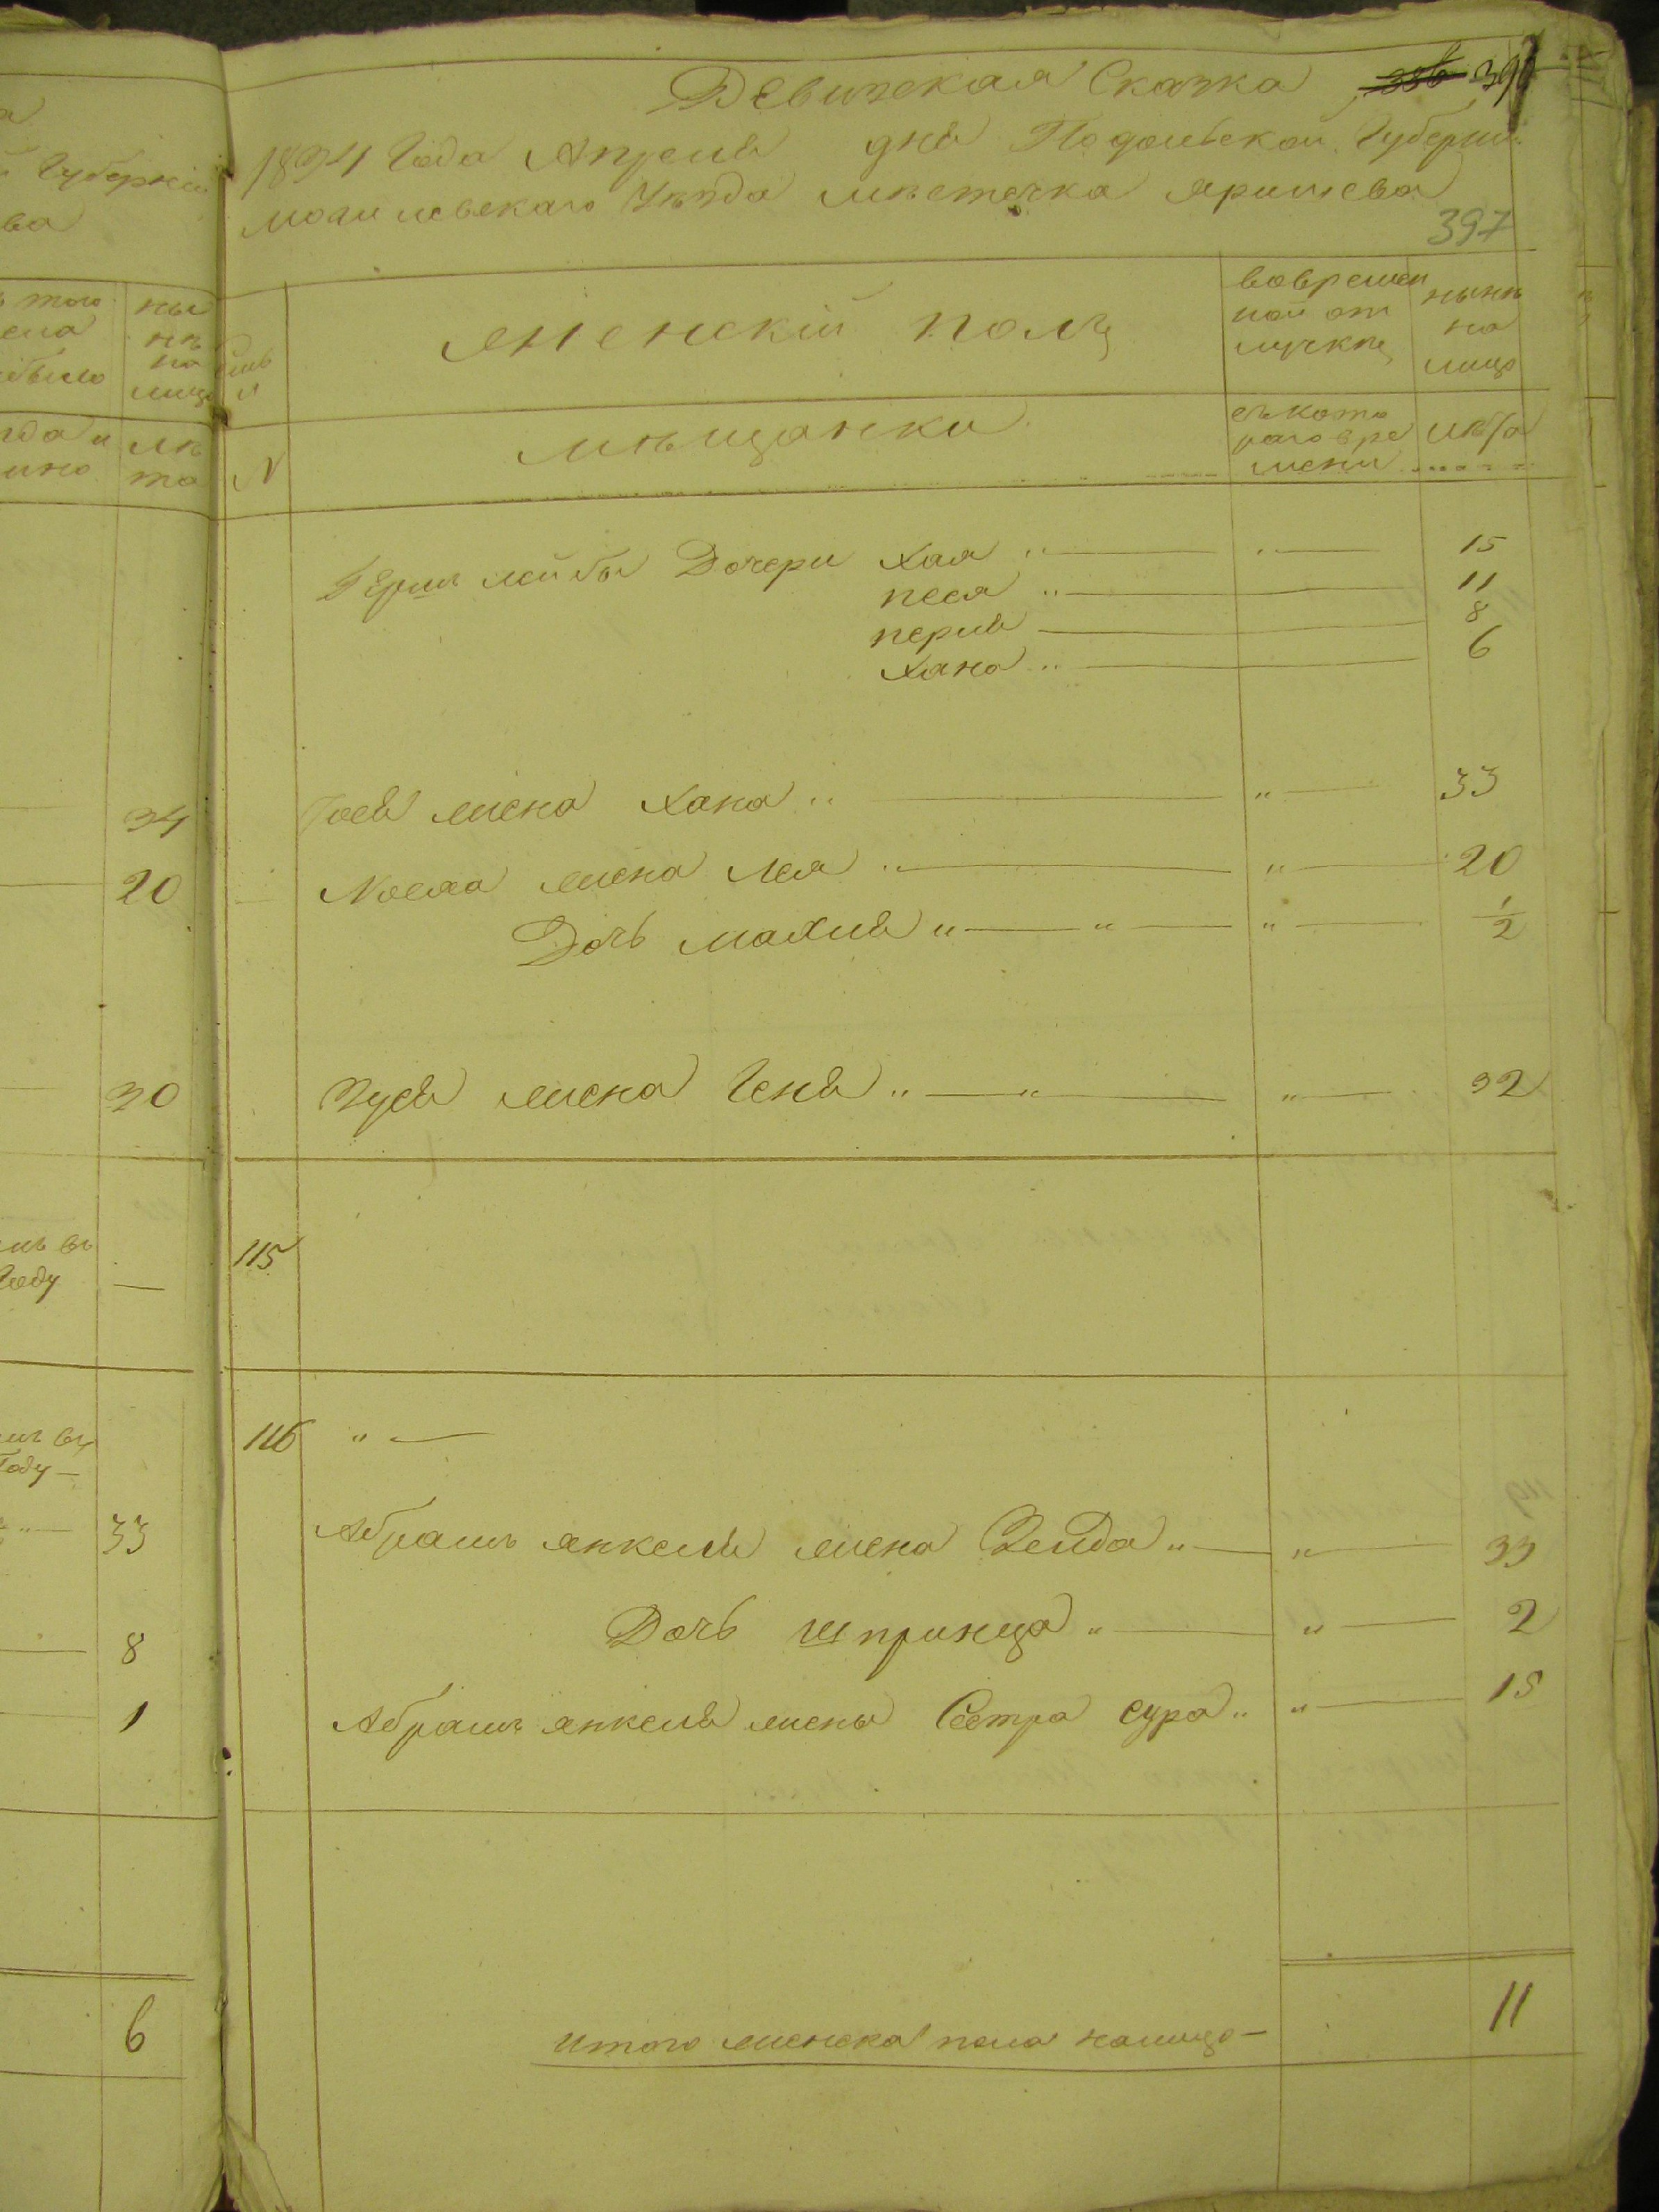 Ревизская Сказка 396
1834 Года Апреля дня Подольской Губернии
могилевскаго Уѣзда мѣстечка яришева
397
семья
женскій полъ
вовремен
ной от
лучкѣ
нынѣ
на
лицо
N
мѣщанки
съкото
раго вре
мени
лѣта
Герш лейбы Дочери Хая „ „ 15
песя „ 11
перля 8
Хана „ 6
Иося жена Хана „ „ 33
Мошка жена Лея „ „ 20
Дочь малия „ „ „ 1/2
Зуся жена Геня „ „ „ 32
115
116 „
Абрамъ янкеля жена Зелда „ „ 33
Дочь шпринца „ „ 2
Абрамъ янкеля жены Сестра сура „ „ 15
итого женска пола налицо 11
Губерніи
ва
того
было
ны
нѣ
на
лицо
лѣ
та
34
20
30
Году —
Году —
33
8
1
6